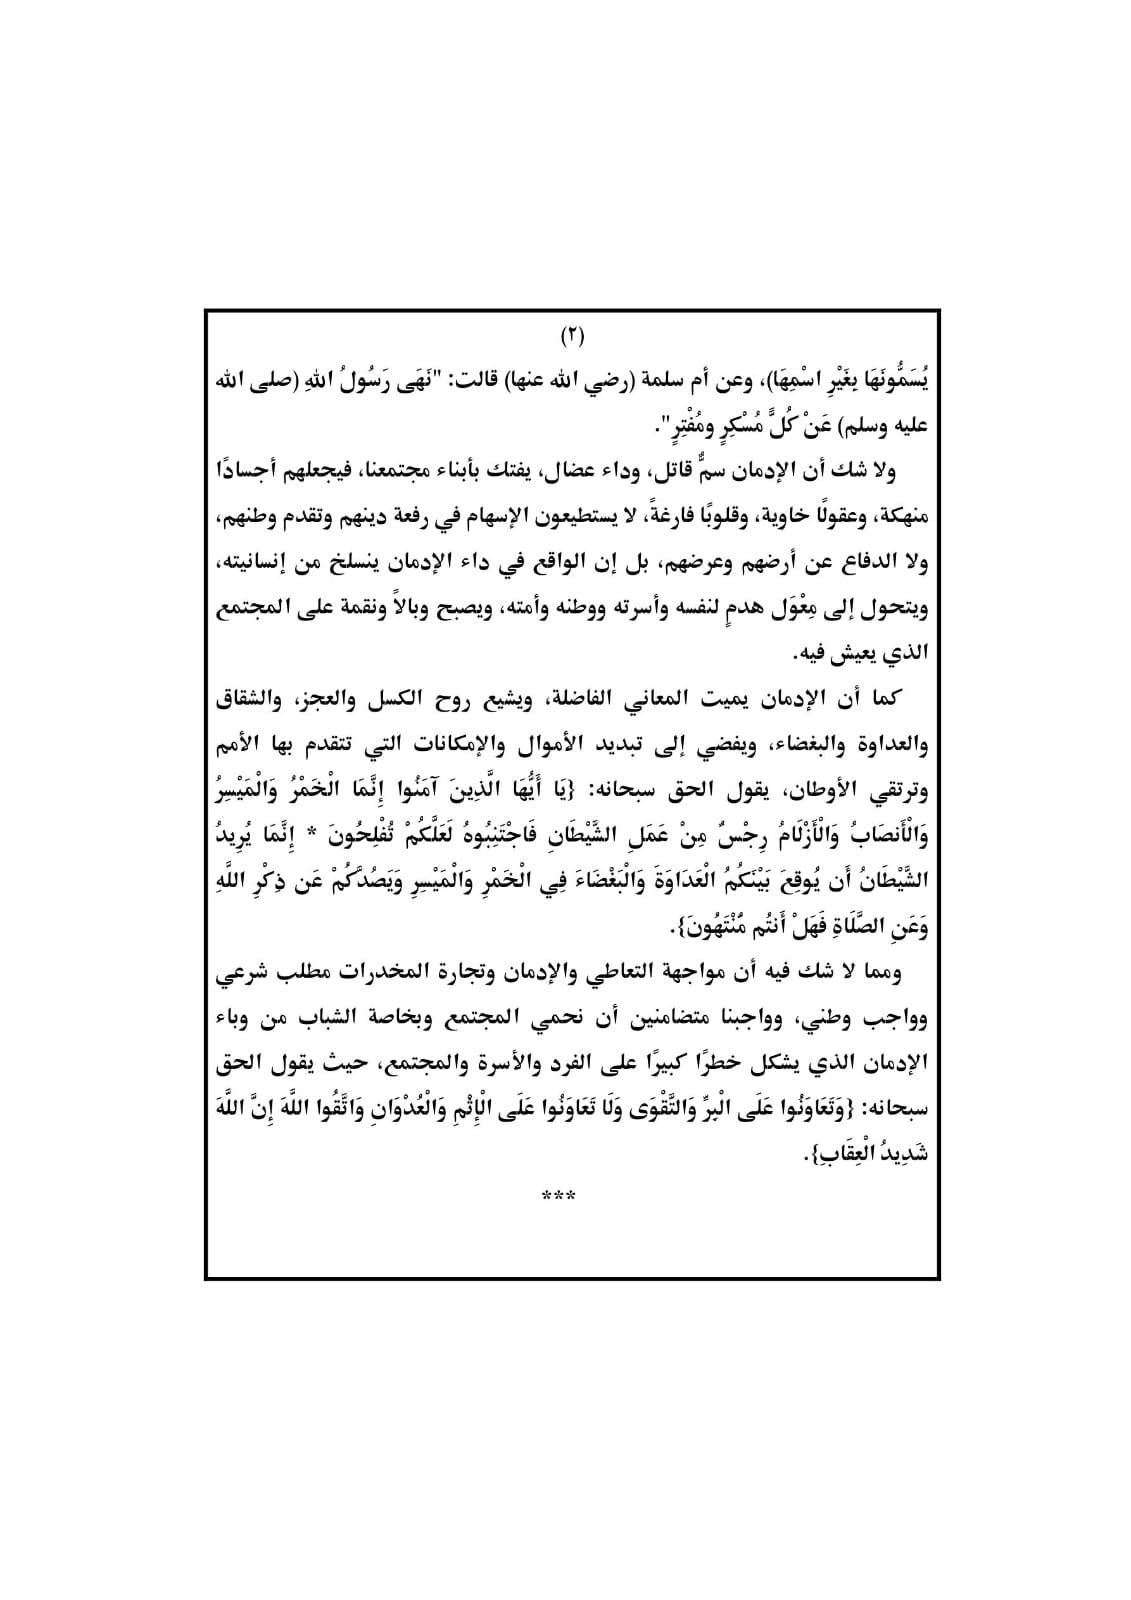 (٢)
يُسَمُّونَهَا بِغَيْرِ اسْمِهَا)، وعن أم سلمة (رضي الله عنها) قالت: "نَهَى رَسُولُ اللهِ (صلى الله
عليه وسلم) عَنْ كُلِّ مُسْكِرٍ ومُفْتِرٍ".
ولا شك أن الإدمان سمٌّ قاتل، وداء عضال، يفتك بأبناء مجتمعنا، فيجعلهم أجسادًا
منهكة، وعقولًا خاوية، وقلوبًا فارغةً، لا يستطيعون الإسهام في رفعة دينهم وتقدم وطنهم،
ولا الدفاع عن أرضهم وعرضهم، بل إن الواقع في داء الإدمان ينسلخ من إنسانيته،
ويتحول إلى مِعْوَل هدمٍ لنفسه وأسرته ووطنه وأمته، ويصبح وبالاً ونقمة على المجتمع
الذي يعيش فيه.
كما أن الإدمان يميت المعاني الفاضلة، ويشيع روح الكسل والعجز، والشقاق
والعداوة والبغضاء، ويفضي إلى تبديد الأموال والإمكانات التي تتقدم بها الأمم
وترتقي الأوطان، يقول الحق سبحانه: {يَا أَيُّهَا الَّذِينَ آمَنُوا إِنَّمَا الْخَمْرُ وَالْمَيْسِرُ
وَالْأَنصَابُ وَالْأَزْلَامُ رِجْسٌ مِنْ عَمَلِ الشَّيْطَانِ فَاجْتَنِبُوهُ لَعَلَّكُمْ تُفْلِحُونَ * إِنَّمَا يُرِيدُ
الشَّيْطَانُ أَن يُوقِعَ بَيْنَكُمُ الْعَدَاوَةَ وَالْبَغْضَاءَ فِي الْخَمْرِ وَالْمَيْسِرِ وَيَصُدَّكُمْ عَن ذِكْرِ اللَّهِ
وَعَنِ الصَّلَاةِ فَهَلْ أَنتُم مُّنْتَهُونَ}.
ومما لا شك فيه أن مواجهة التعاطي والإدمان وتجارة المخدرات مطلب شرعي
وواجب وطني، وواجبنا متضامنين أن نحمي المجتمع وبخاصة الشباب من وباء
الإدمان الذي يشكل خطرًا كبيرًا على الفرد والأسرة والمجتمع، حيث يقول الحق
سبحانه: {وَتَعَاوَنُوا عَلَى الْبِرِّ وَالتَّقْوَى وَلَا تَعَاوَنُوا عَلَى الْإِثْمِ وَالْعُدْوَانِ وَاتَّقُوا اللَّهَ إِنَّ اللَّهَ
شَدِيدُ الْعِقَابِ}.
***